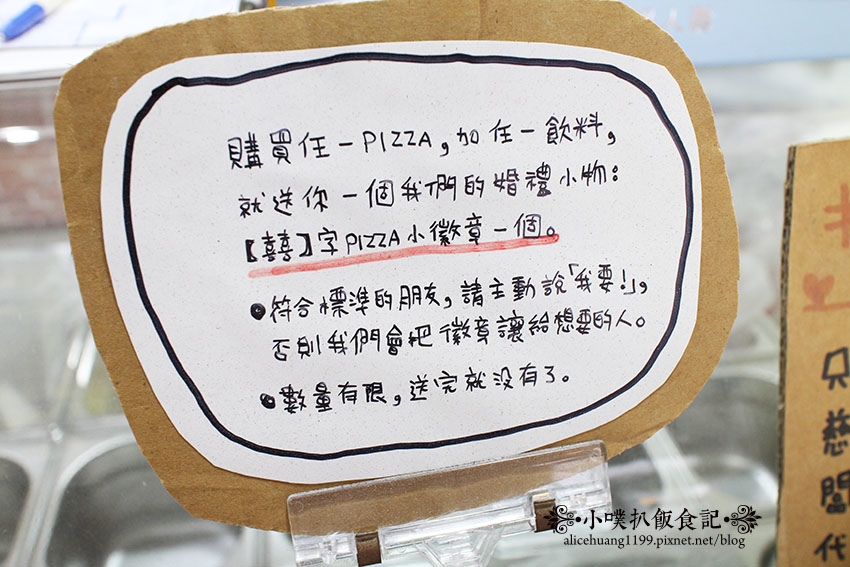 購買任一PIZZA,加任一飲料,
就送你一個我們的婚禮小物:
【囍】字PIZZA小徽章一個。
●符合標準的朋友,請主動說「我要!」,
否則我們會把徽章讓給想要的人。
●數量有限,送完就沒有了。
只
慈
闆
代
•小噗扒飯食記•
alicehuang1199.pixnet.net/blog